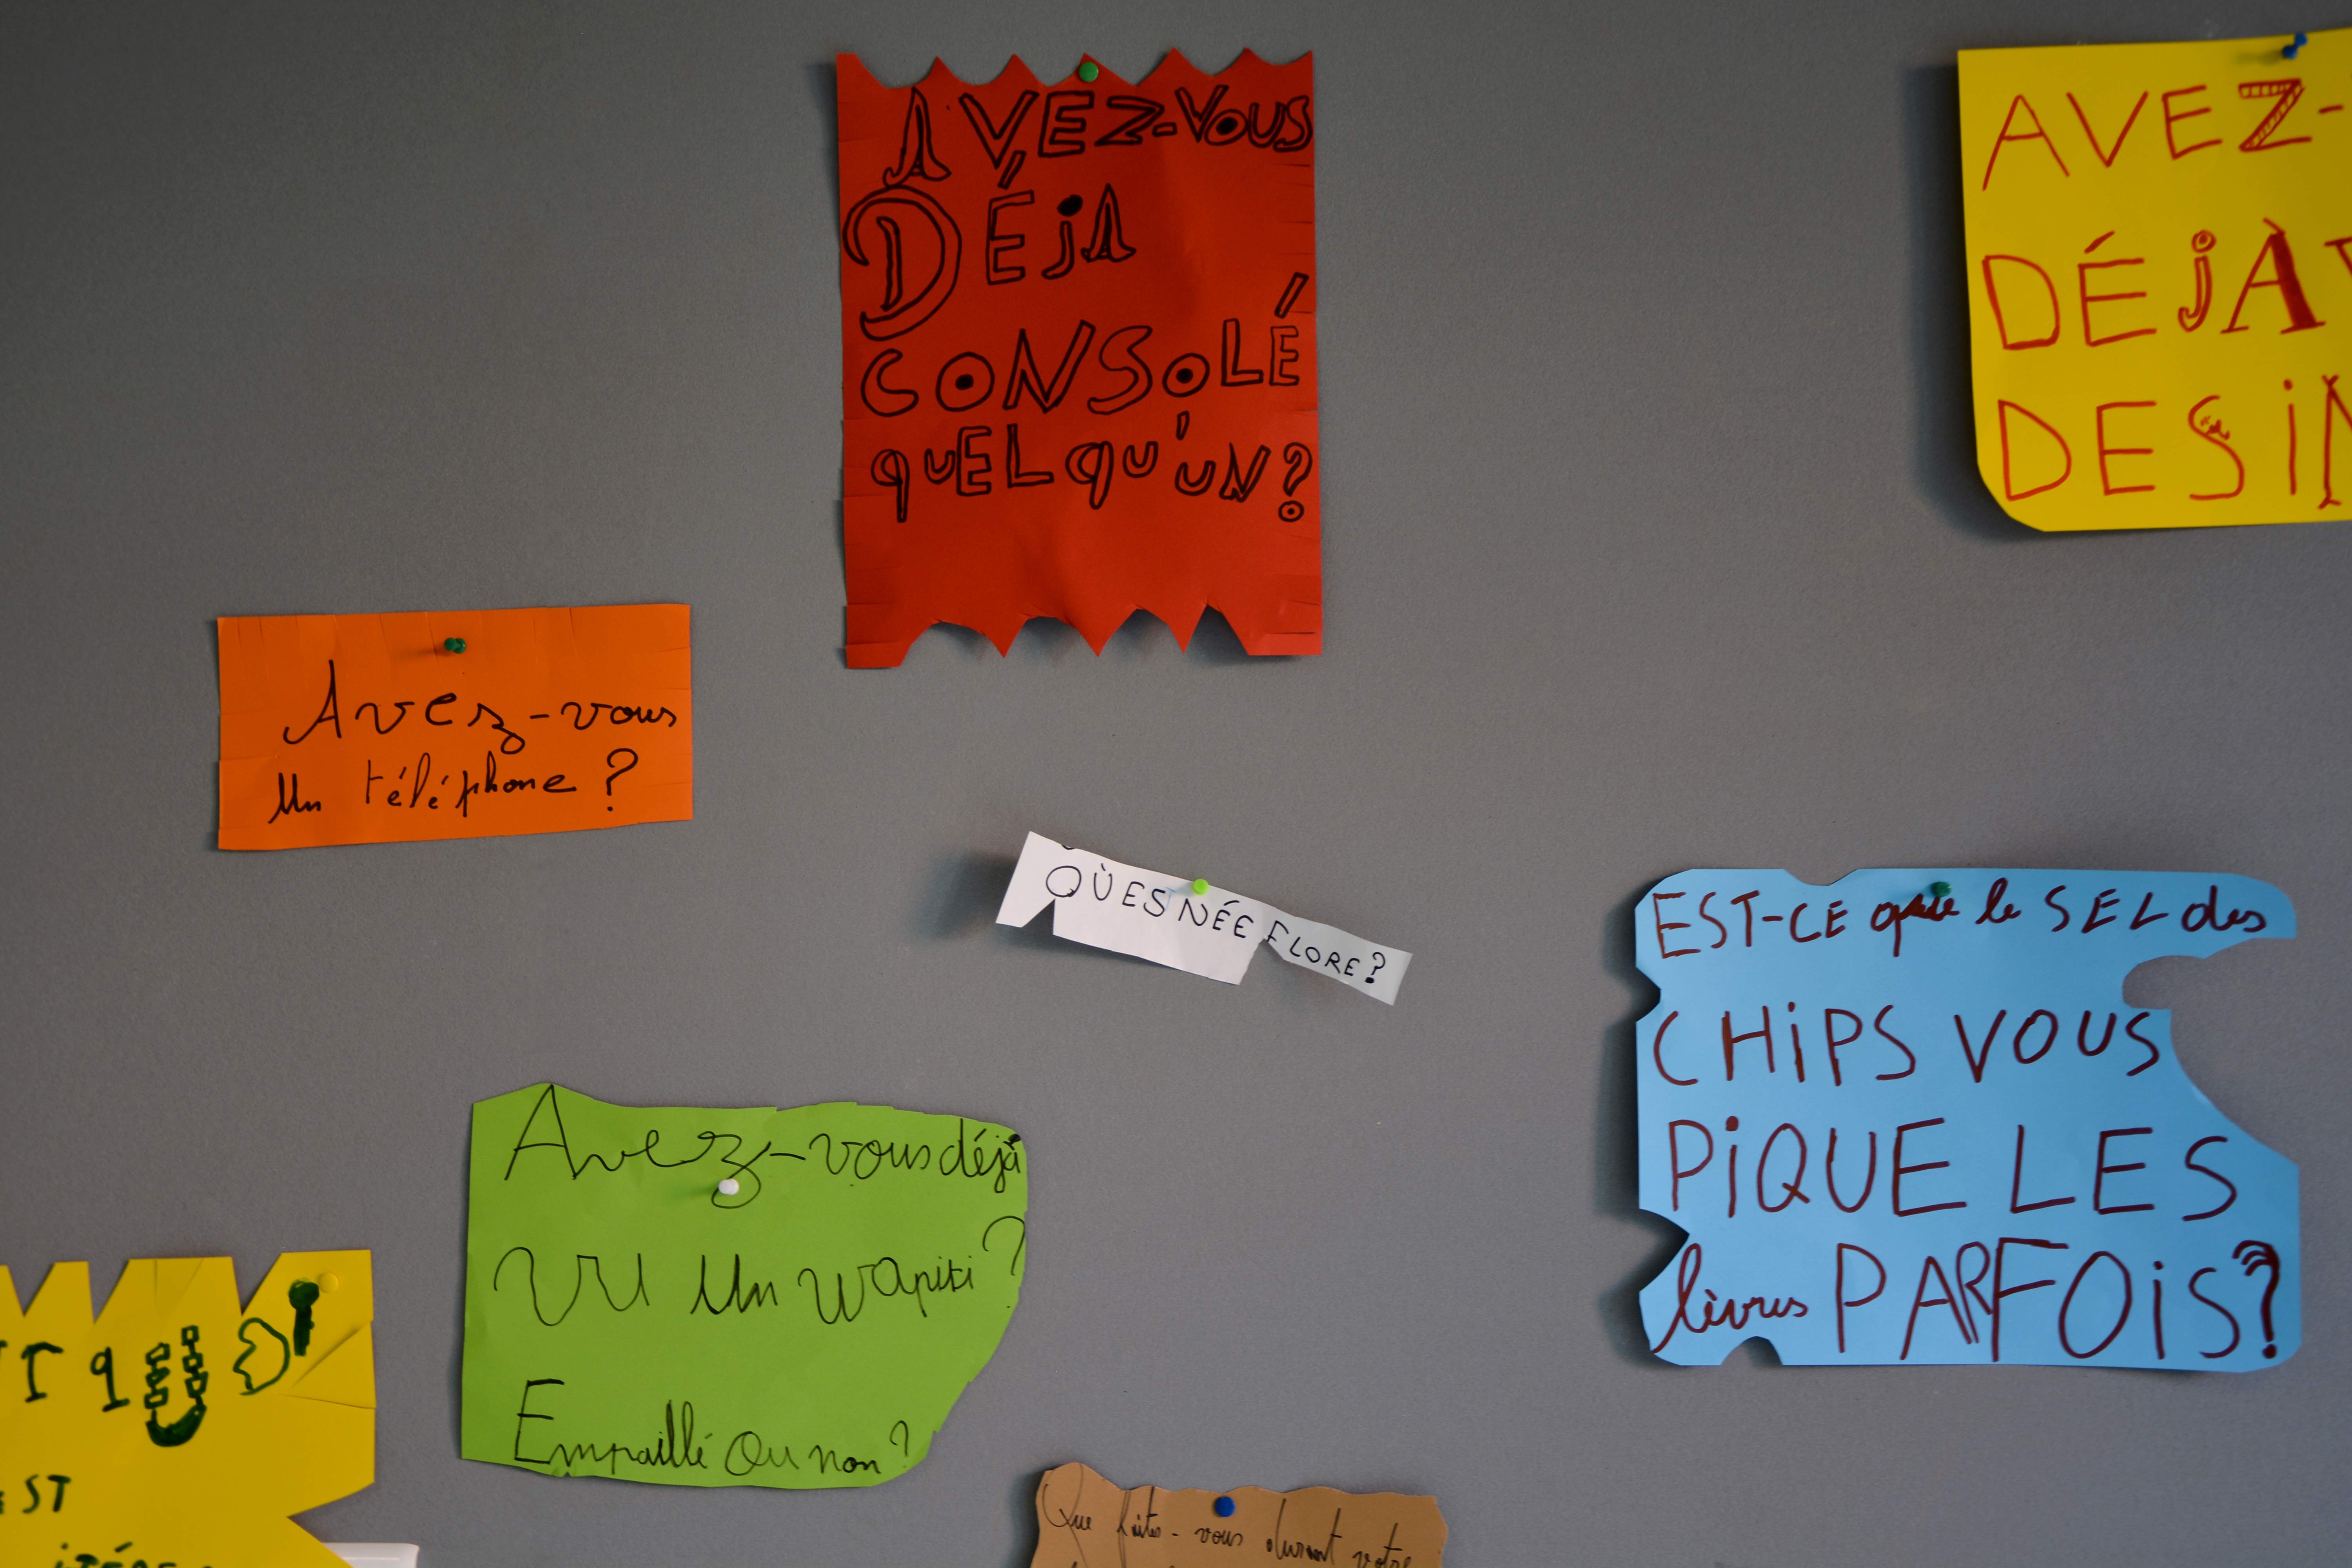 AVEZ-VOUS
DÉjA
CONSOLÉ
quELqu'uN?
AVEZ-
DÉjÀ
DESiN
Avez-vous
Un téléphone?
OÙ ES NÉE FLORE?
EST-CE que le SEL des
CHiPS VOUS
PiQUE LES
lèvres PARFOiS?
Avez-vous déjà
VU Un wapiti?
Empaillé Ou non?
ST
Que faites-vous durant votre